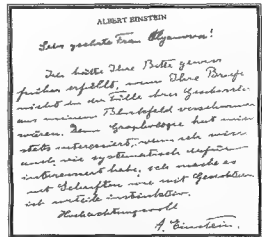 ALBERT EINSTEIN
Sehr geehrte Frau Olyanova!
Ich hätte Ihre Bitte gewiss
früher erfüllt, wenn Ihre Briefe
nicht in der Fülle ihrer
aus meinem Blickfeld verschwunden
wären. Denn Graphologie hat mich
stets interessiert, wenn ich mich
auch nie systematisch dafür
interessiert habe. Ich mache es
mit Schriften wie mit Gesichtern
ich urteile instinktiv.
Hochachtungsvoll
A. Einstein.